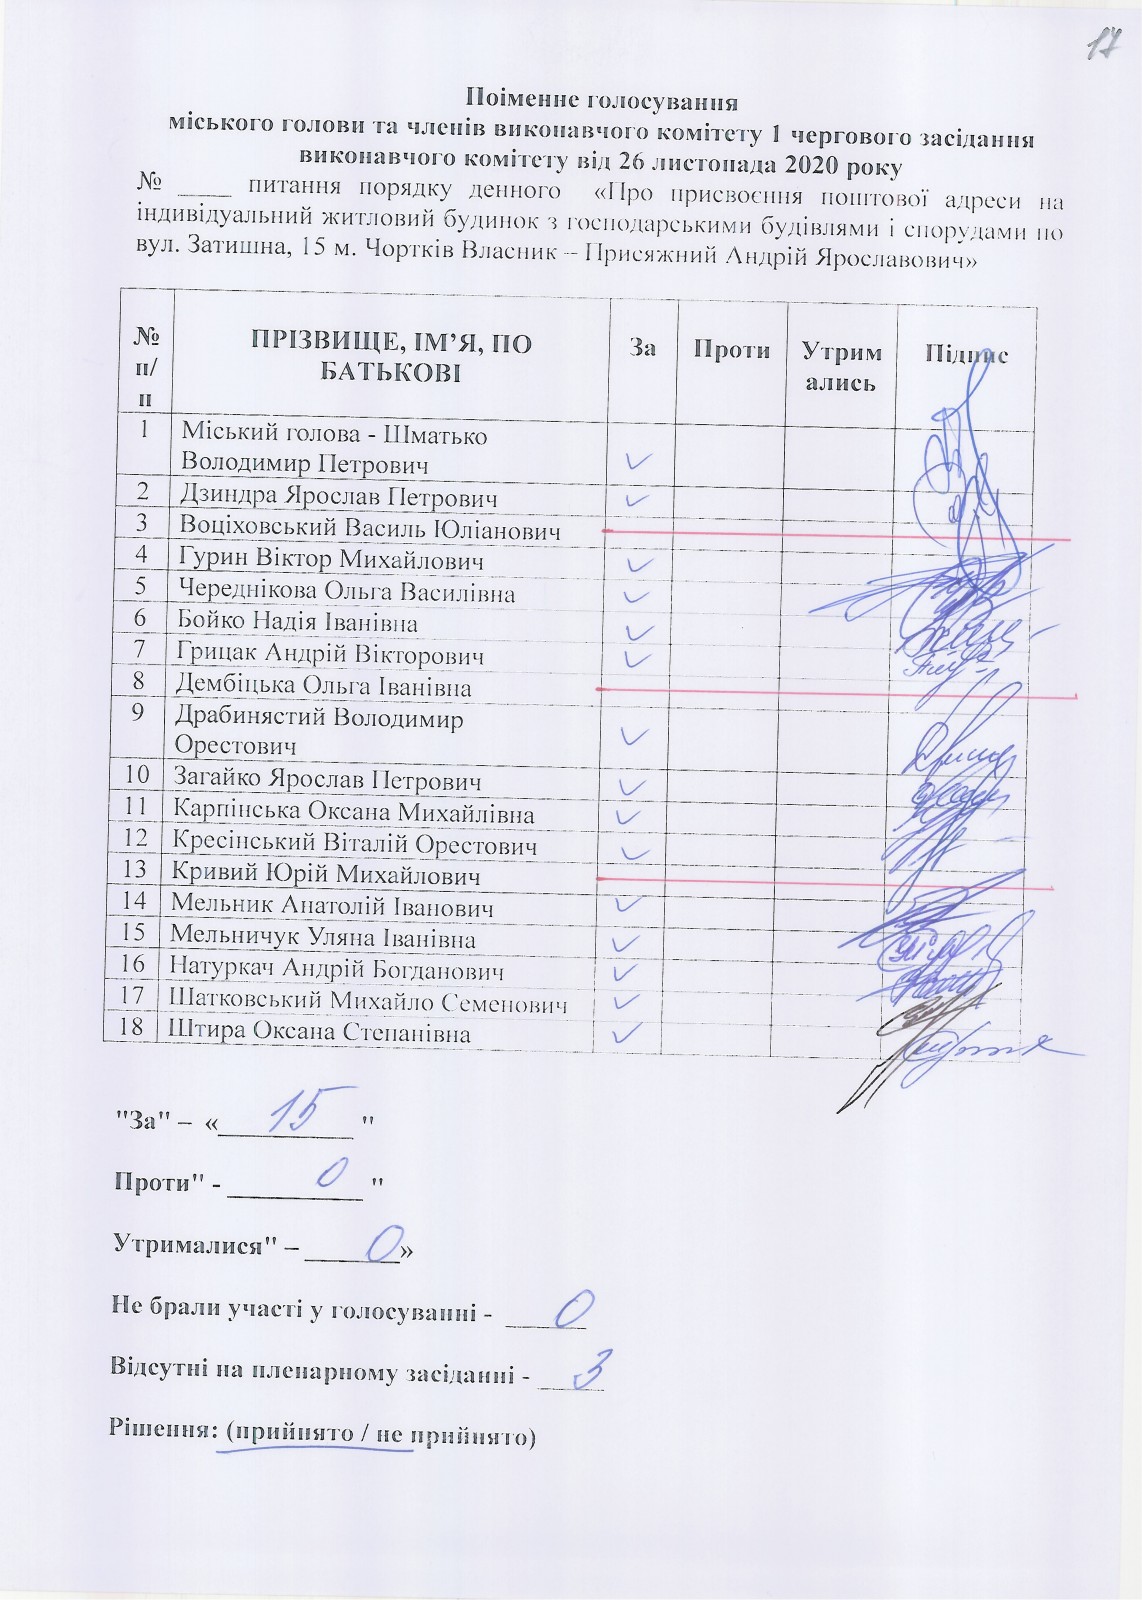 17
Поіменне голосування
міського голови та членів виконавчого комітету 1 чергового засідання
виконавчого комітету від 26 листопада 2020 року
№ ____ питання порядку денного «Про присвоєння поштової адреси на
індивідуальний житловий будинок з господарськими будівлями і спорудами по
вул. Затишна, 15 м. Чортків Власник – Присяжний Андрій Ярославович»
№ п/п ПРІЗВИЩЕ, ІМ’Я, ПО БАТЬКОВІ За Проти Утрим ались Підпис
1 Міський голова - Шматько
Володимир Петрович ✓
2 Дзиндра Ярослав Петрович ✓
3 Воціховський Василь Юліанович
4 Гурин Віктор Михайлович ✓
5 Череднікова Ольга Василівна ✓
6 Бойко Надія Іванівна ✓
7 Грицак Андрій Вікторович ✓
8 Дембіцька Ольга Іванівна
9 Драбинястий Володимир
Орестович ✓
10 Загайко Ярослав Петрович ✓
11 Карпінська Оксана Михайлівна ✓
12 Кресінський Віталій Орестович ✓
13 Кривий Юрій Михайлович
14 Мельник Анатолій Іванович ✓
15 Мельничук Уляна Іванівна ✓
16 Натуркач Андрій Богданович ✓
17 Шатковський Михайло Семенович ✓
18 Штира Оксана Степанівна ✓
"За" – «15 "
Проти" - 0 "
Утрималися" – 0»
Не брали участі у голосуванні - 0
Відсутні на пленарному засіданні - 3
Рішення: (прийнято / не прийнято)